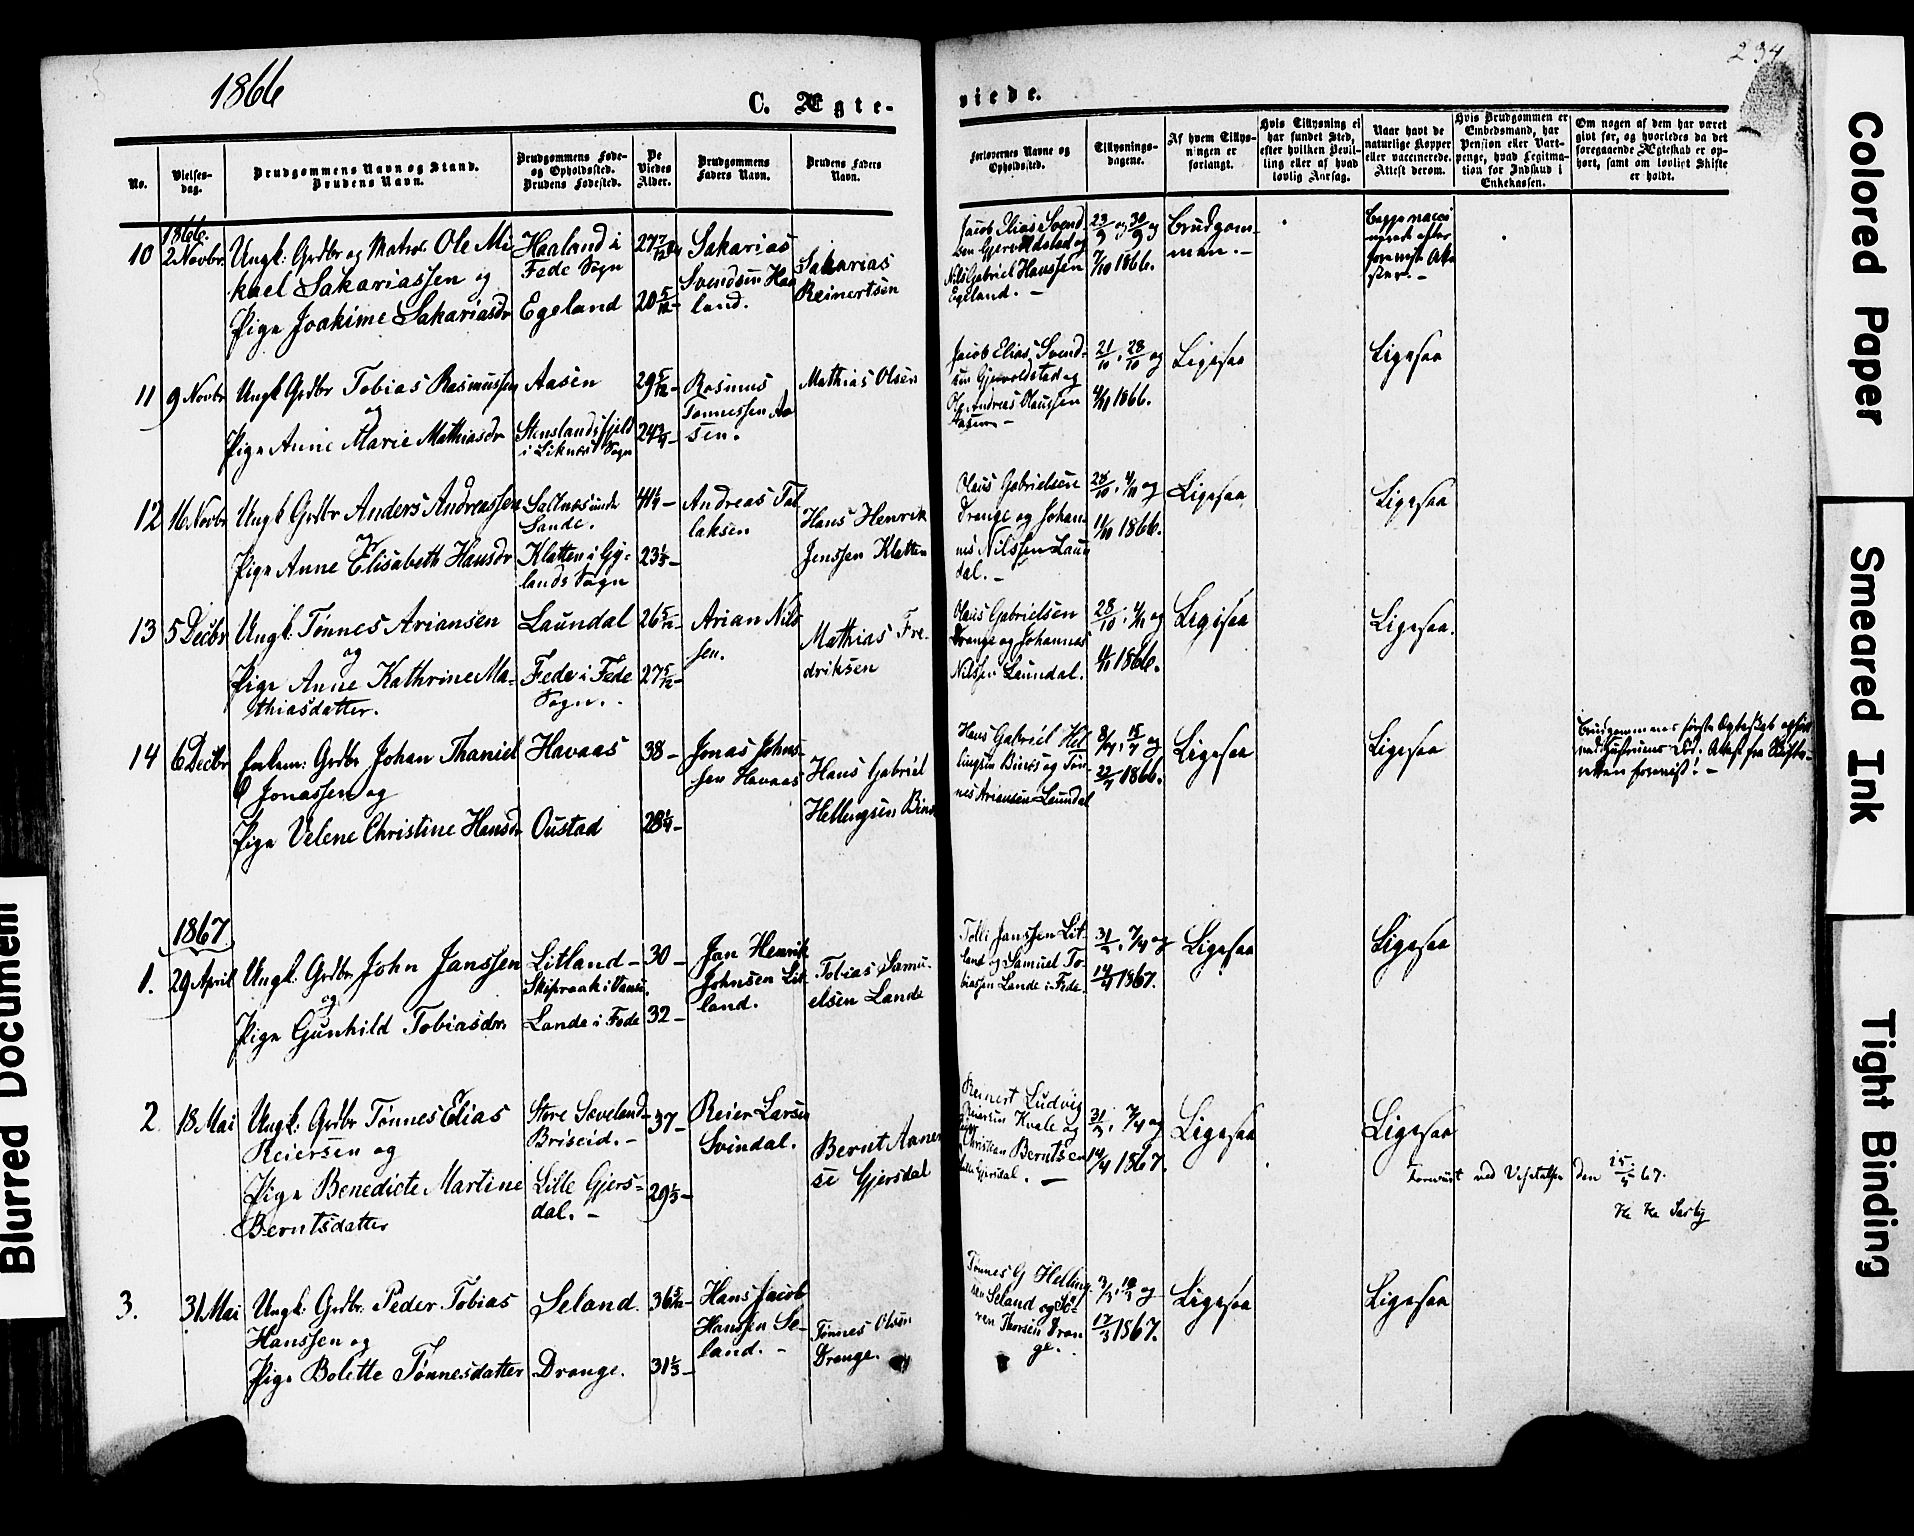 1866
C. Ægte-
viede.
234
No.
Vielses-
dag.
Brudgommens Navn og Stand.
Brudens Navn.
Brudgommens Føde-
og Opholdssted.
Brudens Fødested.
De
Viedes
Alder.
Brudgommens
Faders Navn.
Brudens Faders
Navn.
Forlovernes Navne og
Opholdssted.
Tillysnings-
dagene.
Af hvem Tillys-
ningen er
forlangt.
Hvis Tillysning ei
har fundet Sted,
efter hvilken Bevil-
ling eller af hvad
lovlig Aarsag.
Naar havt de
naturlige Kopper
eller vaccinerede.
Attest derom.
Hvis Brudgommen er
Embedsmand, har
Pension eller Vart-
penge, hvad Legitima-
tion for Indskud i
Enkekassen.
Om nogen af dem har været
givt før, og hvorledes da det
foregaaende Ægteskab er op-
hørt, samt om lovligt Skifte
er holdt.
1866.
10
2 Novbr
Ungk: Grdbr og Matros Ole Mi
kael Sakariassen og
Pige Joakime Sakariasdr
Haaland i
Fede Sogn
Egeland
27 7/12
20 5/12
Sakarias
Svendsen Haa
land.
Sakarias
Reinertsen
Jacob Elias Svend
sen Gjervoldstad og
Nils Gabriel Hanssen
Egeland. -
23/9 og 30/9 og
7/10 1866.
Brudgom-
men. -
Begge vacci
nerede efter
foreviste Atte
ster. -
11
9 Novbr
Ungk Grdbr Tobias Rasmussen
og
Pige Anne Marie Mathiasdr
Aasen
Stensland i Fjeld
i Liknes Sogn
29 5/12
24 3/4
Rasmus
Tønnessen Aa
sen.
Mathias Olsen
Jacob Elias Svend-
sen Gjervoldstad og
Ole Andreas Olaussen
Aasen -
21/10, 28/10 og
4/11 1866.
Ligesaa
Ligesaa
12
16 Novbr
Ungk Grdbr Anders Andreassen
og
Pige Anne Elisabeth Hansdr
Saltnes unde
Sande.
Klatten i Gy-
lands Sogn
41 1/4
23 1/2
Andreas Tal
laksen
Hans Henrik
Jenssen Klatten
Olaus Gabrielsen
Drange og Johan
nes Nilssen Laun
dal. -
28/10, 4/11 og
11/11 1866.
Ligesaa
Ligesaa
13
5 Decbr
Ungk: Tønnes Ariansen
og
Pige Anne Kathrine Ma-
thiasdatter.
Laundal
Fede i Fede
Sogn.
26 5/12
27 5/12
Arian Nils
sen.
Mathias Fre-
driksen
Olaus Gabrielsen
Drange og Johannes
Nilssen Laundal.
28/10, 4/11 og
11/11 1866.
Ligesaa
Ligesaa.
14
6 Decbr
Enkem: Grdbr Johan Thaniel
Jonassen og
Pige Velene Christine Hansdr
Havaas
Oustad
38 -
28 1/4 -
Jonas Johns
sen Havaas
Hans Gabriel
Hellingsen
Hans Gabriel Hel
lingsen og Tøn-
nes Ariansen Laundal
8/7, 15/7 og
22/7 1866.
Ligesaa
Ligesaa
Brudgommens første Ægteskab ophørt
ved Hustruens Død. Attest fra Skifte-
retten forevist. -
1867
1.
29 April
Ungk. Grdbr John Janssen
og
Pige Gunhild Tobiasdr.
Litland -
Lande i Fede
30 -
32 -
Jan Henrik
Johnsen Lit-
land.
Tobias Samu-
elsen Lande
Tolli Janssen Lit-
land og Samuel To-
biassen Lande i Fede.
31/3, 7/4 og
14/4 1867.
Ligesaa
Ligesaa
2
18 Mai
Ungk. Grdbr Tønnes Elias
Reiersen og
Pige Benedicte Martine
Berntsdatter
Store Sæveland
Briseid. -
Lille Gjers-
dal. -
37 -
29 1/3 -
Reier Larsen
Svindal.
Bernt Annen
se Gjersdal
Reinert Ludvig
Reiersen Kvale og
Christian Berntsen
Lille Gjersdal. -
31/3, 7/4 og
14/4 1867.
Ligesaa
Ligesaa
Forevist ved Visitatsen den 25/5 67.
3.
31 Mai
Ungk. Grdbr. Peder Tobias
Hanssen og
Pige Bolette Tønnesdatter
Seland.
Drange.
36 5/12 -
31 1/3 -
Hans Jacob
Hanssen Se-
land. -
Tønnes Olsen
Drange.
Tønnes G Helling-
sen Seland og Sø-
ren Thorsen Dran
ge.
3/3, 10/3 og
17/3 1867.
Ligesaa
Ligesaa
Colored Paper
Smeared Ink
Tight Binding
Blurred Document